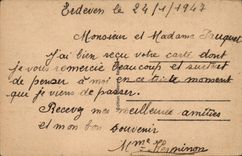 Erdeven le 24/1/1947
Monsieur et Madame Druguet
J'ai bien reçu votre carte dont
je vous remercie beaucoup et surtout
de penser à moi en ce triste moment
que je viens de passer.
Recevez mes meilleures amitiés
et mon bon souvenir
Mme